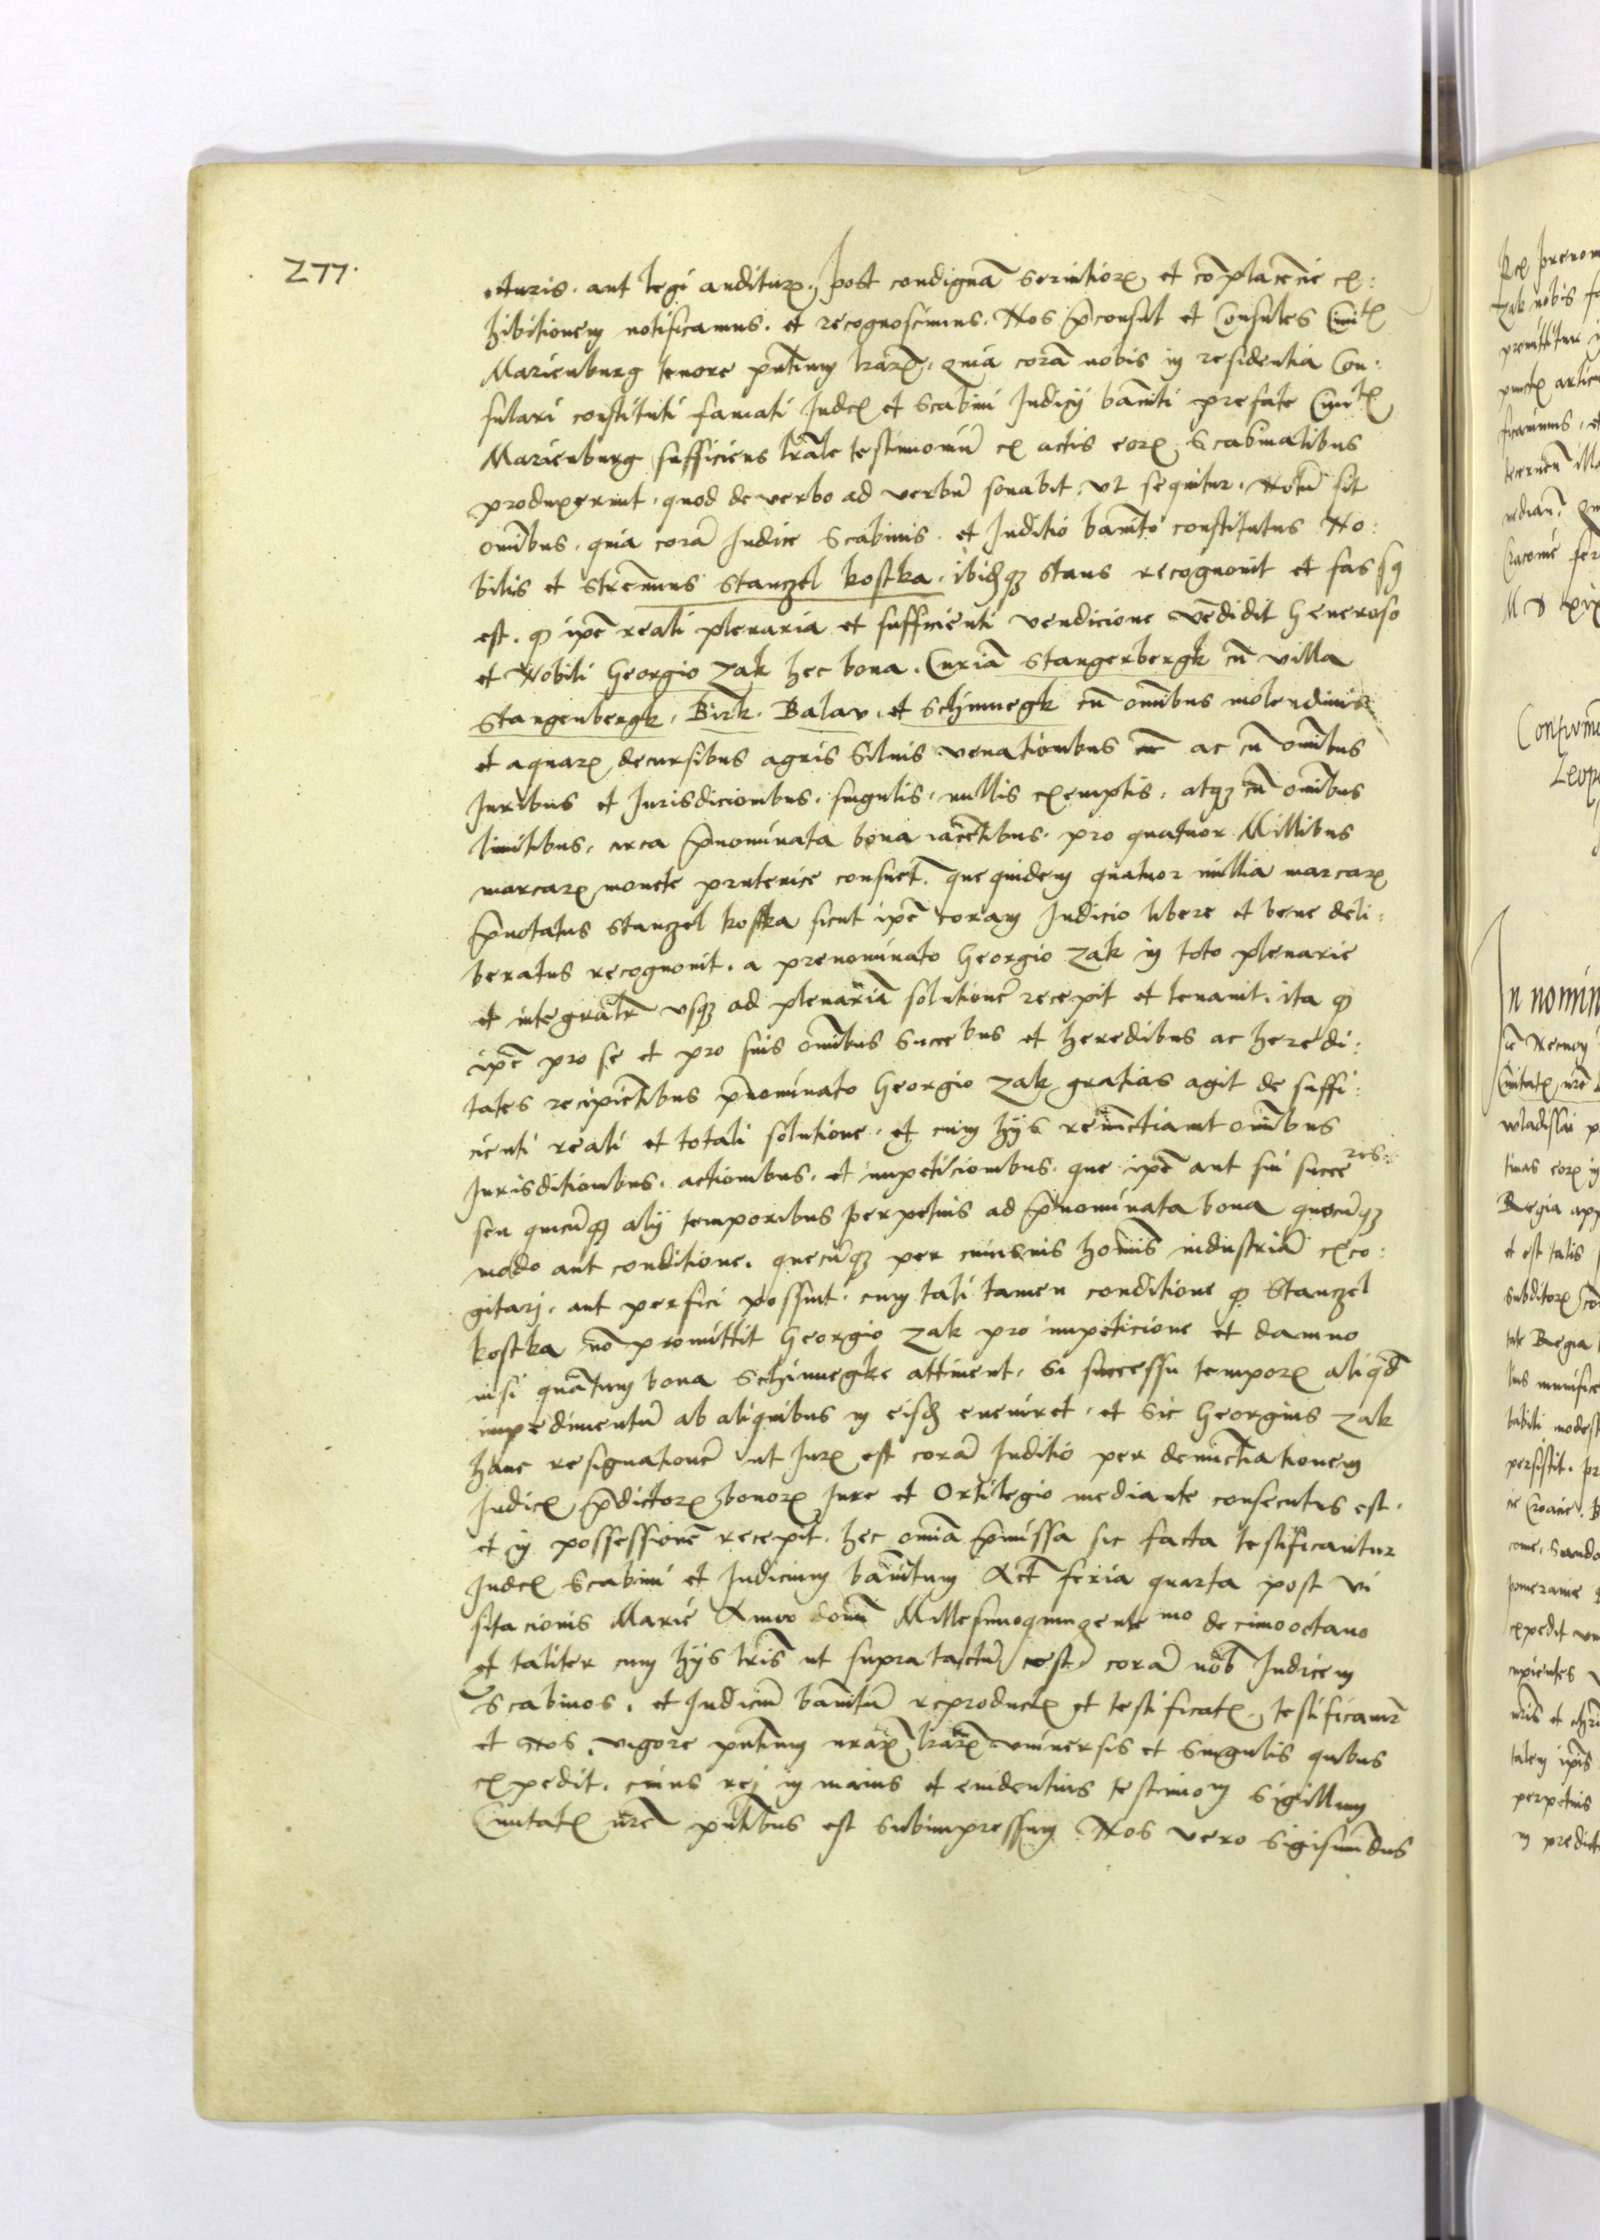 277.
cturis. aut legi auditurꝝ. post condignā servitiorꝝ et cōplacēcie ex:
hibitionem notificamus. et recognoscimus. Nos p̄consul et Consules Civitꝭ
Marienburg tenore pn̄tium lrarꝝ, quia corā nobis in residentia Con:
sulari constituti famati Iudex et Scabini Iudicij bān̄iti prefate Civitꝭ
Marienburg sufficiens lrāle testimoniū ex actis eorꝝ Scabinalibus
produxerunt, quod de verbo ad verbū sonabit, vt sequitur. Notū sit
omībus, quia corā Iudice Scabinis et Iuditio bān̄ito constitutus No:
bilis et strēnuus Stanczel kostka, ibidqꝫ stans recognovit et fassꝯ
est. ꝙ ip̄e reali plenaria et sufficienti vendicione vēdidit Generoso
et Nobili Georgio Zak hec bona. Curiā Stangerbergk cū villa
Stangenbergk, Birk. Balav. et Schimnegk cū omībus molendinis
et aquarꝝ decursibus agris Silvis venationibus ac cū omībus
Iuribus et Iurisdicionibus, singulis, nullis exemptis, atqꝫ cū omībus
limitibus, circa p̄nominata bona iacētibus. pro quatuor Millibus
marcarꝝ monete prutenice consuet. que quidem quatuor millia marcarꝝ
p̄notatus Stanczel kostka sicut ip̄e coram Iudicio libere et bene deli:
beratus recognovit. a prenominato Georgio Zak in toto plenarie
et integralr̄ vsqꝫ ad plenariā solutionē recepit et levavit. ita ꝙ
ip̄e pro se et pro suis omībus Succebus et heredibus ac heredi:
tates recipiētibus p̄nominato Georgio Zak gratias agit de suffi:
cienti reali et totali solutione. et cum hijs renūctiavit omībus
Iurisditionibus. actionibus. et impeticionibus. que ip̄e aut sui succeres:
seu quicūqꝫ alij temporibus perpetuis ad p̄nominata bona quocūqꝫ
modo aut conditione. quecūqꝫ per cuiusvis homis industriā exco:
gitarj. aut perfici possint. cum tali tamen conditione ꝙ Stanczel
kostka nō promittit Georgio Zak pro impeticione et damno
nisi quātum bona Schimnegke attinent. Si successu temporꝝ aliqd̄
impedimentū ab aliquibus in eisd eveniret. et Sic Georgius Zak
hanc resignationē ut Iurꝭ est corā Iuditio per denūctiationem
Iudicꝭ p̄dictorꝝ bonorꝝ Iure et Ortilegio mediante consecutus est.
et in possessionē recepit. hec omīa p̄missa sic facta testificantur
Iudex Scabini et Iudicium bān̄itum Act̄ feria quarta post vi
sitacionis Marie Anno domī Millesimoquingentemo decimooctavo
et taliter cum hijs lrīs ut supratactū est corā nob̄ Iudicem
Scabinos. et Iudiciū bān̄itū reproductꝭ et testificatꝭ, testificamr̄
et Nos. vigore pn̄tium nr̄arꝝ lrarꝝ vniversis et Singulis quibus
expedit. cuius rej in maius et evidentius testimoni Sigillum
Civitatꝭ nr̄e pn̄tibus est Subimpressum Nos vero Sigismūdus